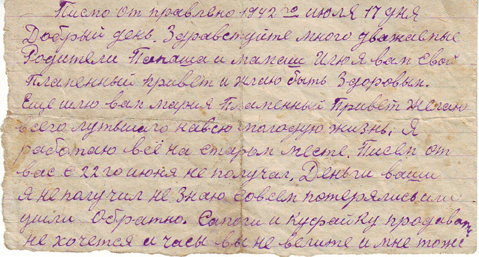 Писмо от правлено 1942 го июля 17 дня
Добрый день. Здравствуйте много уважаемые
Родители Папаша и мамаша Шлю я вам свой
Пламенный привет и жилаю быть Здоровым.
Ещё шлю вам Мария Пламенный Привет желаю
всего лутьшаго навсю молодую жизнь. Я
работаю всё на старом месте. Писем от
вас с 22 го июня не получал. Деньги ваши
я не получил не знаю совсем потерялись или
ушли Обратно. Сапоги и куфайку продовать
не хочется и часы вы не велите и мне тоже